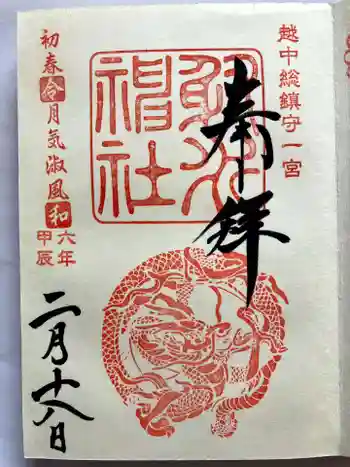 越中総鎮守一宮
奉拝
射水神社
初春令月気淑風和
六年
甲辰
二月十八日